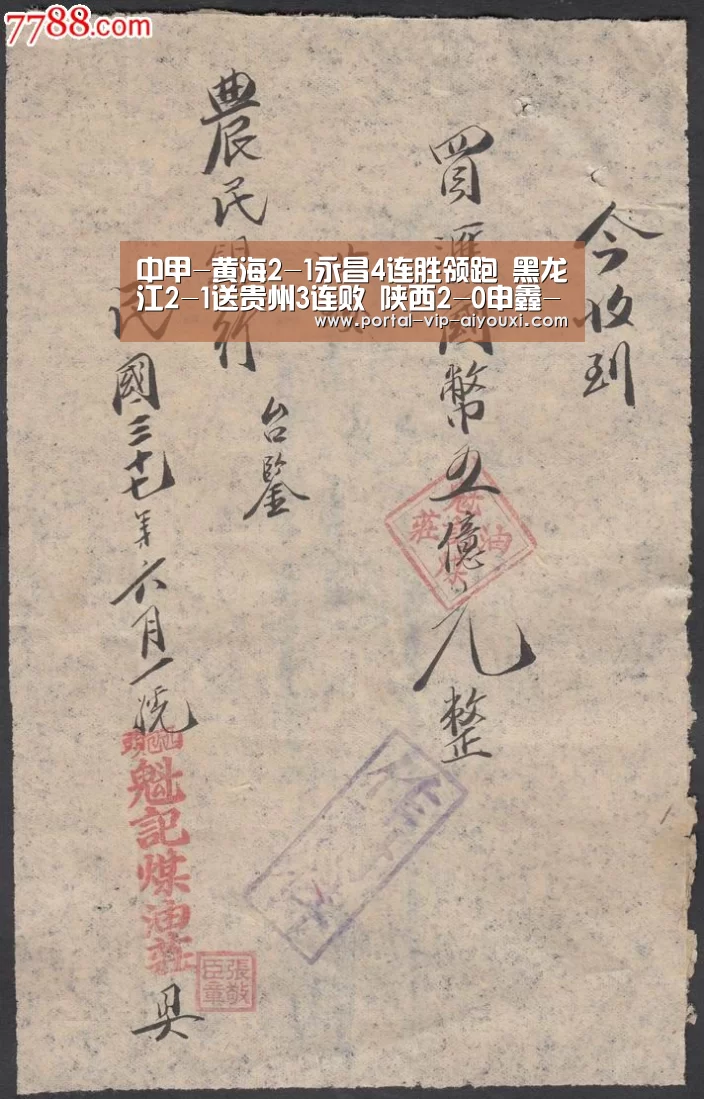 7788.com
今收到
買匯國幣五億元整
農民銀行
台鑒
民國三十七年六月一號
魁記煤油莊
具
張敬臣章
油莊
中甲-黄海2-1永昌4连胜领跑 黑龙
江2-1送贵州3连败 陕西2-0申鑫-
www.portal-vip-aiyouxi.com